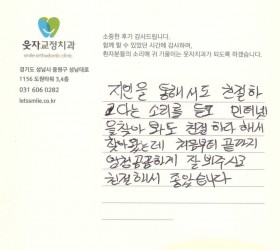 웃자교정치과
smile orthodontic clinic
경기도 성남시 중원구 성남대로
1156 도원타워 3,4층
031 606 0282
letssmile.co.kr
소중한 후기 감사드립니다.
함께 할 수 있었던 시간에 감사하며,
환자분들의 소리에 귀 기울이는 웃자치과가 되도록 하겠습니다.
지인을 통해서도 친절하
고다는 소리를 듣고 인터넷
을 찾아 봐도 친절 하다 해서
찾아왔는데 처음부터 끝까지
꼼꼼하게 잘 봐주시고
친절해서 좋았습니다